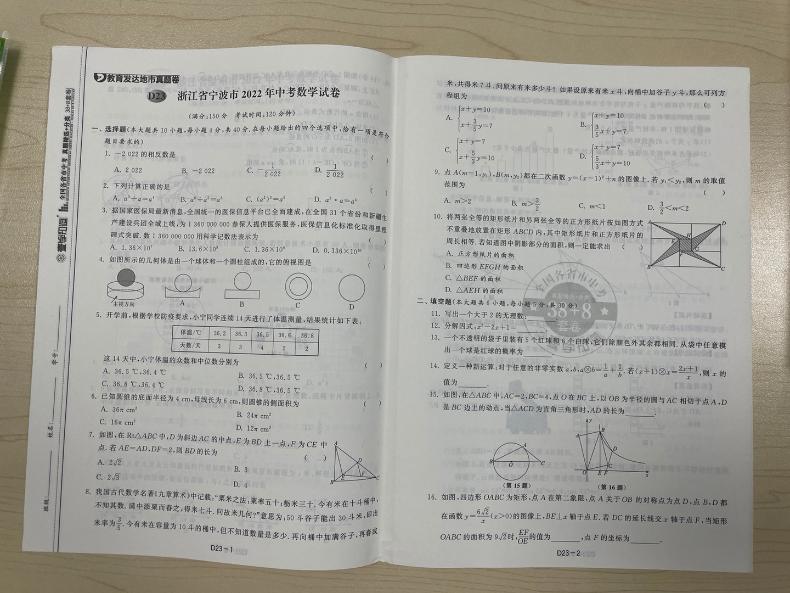 教育发达地市真题卷
D23 浙江省宁波市 2022 年中考数学试卷
(满分:150 分 考试时间:120 分钟)
一、选择题(本大题共 10 小题,每小题 4 分,共 40 分.在每小题给出的四个选项中,恰有一项是符合
题目要求的)
1. -2 022 的相反数是 ( )
A. 2 022 B. -2 022 C. -1/2 022 D. 1/2 022
2. 下列计算正确的是 ( )
3. 据国家医保局最新消息,全国统一的医保信息平台已全面建成,在全国 31 个省份和新疆生
产建设兵团全域上线,为 1 360 000 000 参保人提供医保服务,医保信息化标准化取得里程
碑式突破.数 1 360 000 000 用科学记数法表示为 ( )
A. 1.36×10⁷ B. 13.6×10⁸ C. 1.36×10⁹ D. 0.136×10¹⁰
4. 如图所示的几何体是由一个球体和一个圆柱组成的,它的俯视图是 ( )
主视方向 A B C D
5. 开学前,根据学校防疫要求,小宁同学连续 14 天进行了体温测量,结果统计如下表:
体温/℃ 36.2 36.3 36.5 36.6 36.8
天数/天 3 3 4 2 2
这 14 天中,小宁体温的众数和中位数分别为 ( )
A. 36.5 ℃,36.4 ℃ B. 36.5 ℃,36.5 ℃
C. 36.8 ℃,36.4 ℃ D. 36.8 ℃,36.5 ℃
6. 已知圆锥的底面半径为 4 cm,母线长为 6 cm,则圆锥的侧面积为 ( )
A. 36π cm² B. 24π cm²
C. 16π cm² D. 12π cm²
7. 如图,在 Rt△ABC 中,D 为斜边 AC 的中点,E 为 BD 上一点,F 为 CE 中
点.若 AE=AD,DF=2,则 BD 的长为 ( )
A. 2√2 B. 3
C. 2√3 D. 4
8. 我国古代数学名著《九章算术》中记载:"粟米之法:粟率五十;粝米三十.今有米在十斗桶中,
不知其数.满中添粟而舂之,得米七斗.问故米几何?"意思为:50 斗谷子能出 30 斗米,即出
米率为 3/5.今有米在容量为 10 斗的桶中,但不知道数量是多少.再向桶中加满谷子,再舂成
D23-1
米,共得米 7 斗.问原来有米多少斗?如果设原来有米 x 斗,向桶中加谷子 y 斗,那么可列方
程组为 ( )
A. { x+y=10 x+3/5 y=7 B. { x+y=10 3/5 x+y=7
C. { x+y=7 x+5/3 y=10 D. { x+y=7 5/3 x+y=10
9. 点 A(m-1,y₁),B(m,y₂)都在二次函数 y=(x-1)²+n 的图像上.若 y₁<y₂,则 m 的取值
范围为 ( )
A. m>2 B. m>3/2 C. m<1 D. 3/2<m<2
10. 将两张全等的矩形纸片和另两张全等的正方形纸片按如图方式
不重叠地放置在矩形 ABCD 内,其中矩形纸片和正方形纸片的
周长相等.若知道图中阴影部分的面积,则一定能求出 ( )
A. 正方形纸片的面积
B. 四边形 EFGH 的面积
C. △BEF 的面积
D. △AEH 的面积
二、填空题(本大题共 6 小题,每小题 5 分,共 30 分)
11. 写出一个大于 2 的无理数:
12. 分解因式:x²-2x+1=
13. 一个不透明的袋子里装有 5 个红球和 6 个白球,它们除颜色外其余都相同.从袋中任意摸
出一个球是红球的概率为
14. 定义一种新运算:对于任意的非零实数 a,b,a⊗b=1/a+1/b.若(x+1)⊗x=(2x+1)/x,则 x 的
值为
15. 如图,在△ABC 中,AC=2,BC=4,点 O 在 BC 上,以 OB 为半径的圆与 AC 相切于点 A.D
是 BC 边上的动点,当△ACD 为直角三角形时,AD 的长为
(第 15 题) (第 16 题)
16. 如图,四边形 OABC 为矩形,点 A 在第二象限,点 A 关于 OB 的对称点为点 D,点 B,D 都
在函数 y=6√2/x (x>0)的图像上,BE⊥x 轴于点 E.若 DC 的延长线交 x 轴于点 F,当矩形
OABC 的面积为 9√2 时,EF/OE 的值为 ,点 F 的坐标为 .
D23-2
全国各省市中考
38+8
套卷
学号:
姓名:
班级: